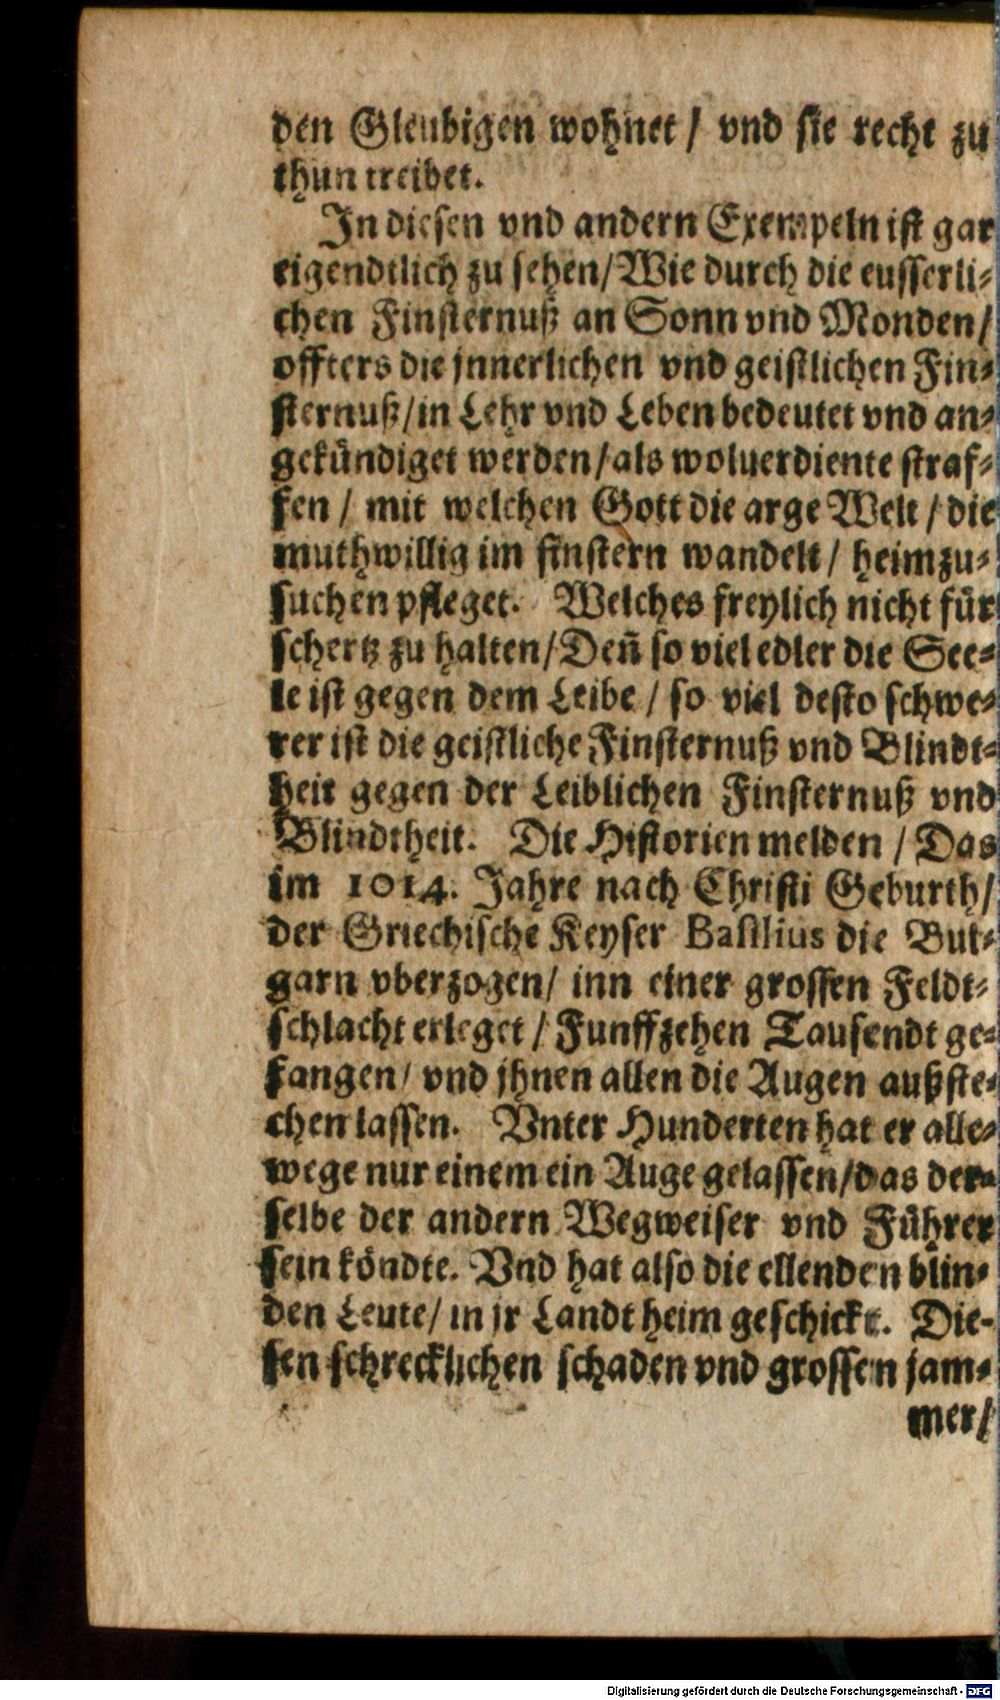 den Gleubigen wohnet / vnd sie recht zu
thun treibet.
In diesen vnd andern Exempeln ist gar
eigendtlich zu sehen/Wie durch die eusserli-
chen Finsternuß an Sonn vnd Monden/
offters die jnnerlichen vnd geistlichen Fin-
sternuß/in Lehr vnd Leben bedeutet vnd an-
gekündiget werden/als woluerdiente straf-
fen / mit welchen Gott die arge Welt / die
muthwillig im finstern wandelt / heimzu-
suchen pfleget. Welches freylich nicht für
schertz zu halten/Deñ so viel edler die See-
le ist gegen dem Leibe / so viel desto schwe-
rer ist die geistliche Finsternuß vnd Blindt-
heit gegen der Leiblichen Finsternuß vnd
Blindtheit. Die Historien melden / Das
im 1014. Jahre nach Christi Geburth/
der Griechische Keyser Basilius die Bul-
garn vberzogen/ inn einer grossen Feldt-
schlacht erleget / Funffzehen Tausendt ge-
fangen/ vnd jhnen allen die Augen außste-
chen lassen. Vnter Hunderten hat er alle-
wege nur einem ein Auge gelassen/das der-
selbe der andern Wegweiser vnd Führer
sein köndte. Vnd hat also die ellenden blin-
den Leute/ in jr Landt heim geschickt. Die-
sen schrecklichen schaden vnd grossen jam-
mer/
Digitalisierung gefördert durch die Deutsche Forschungsgemeinschaft - DFG